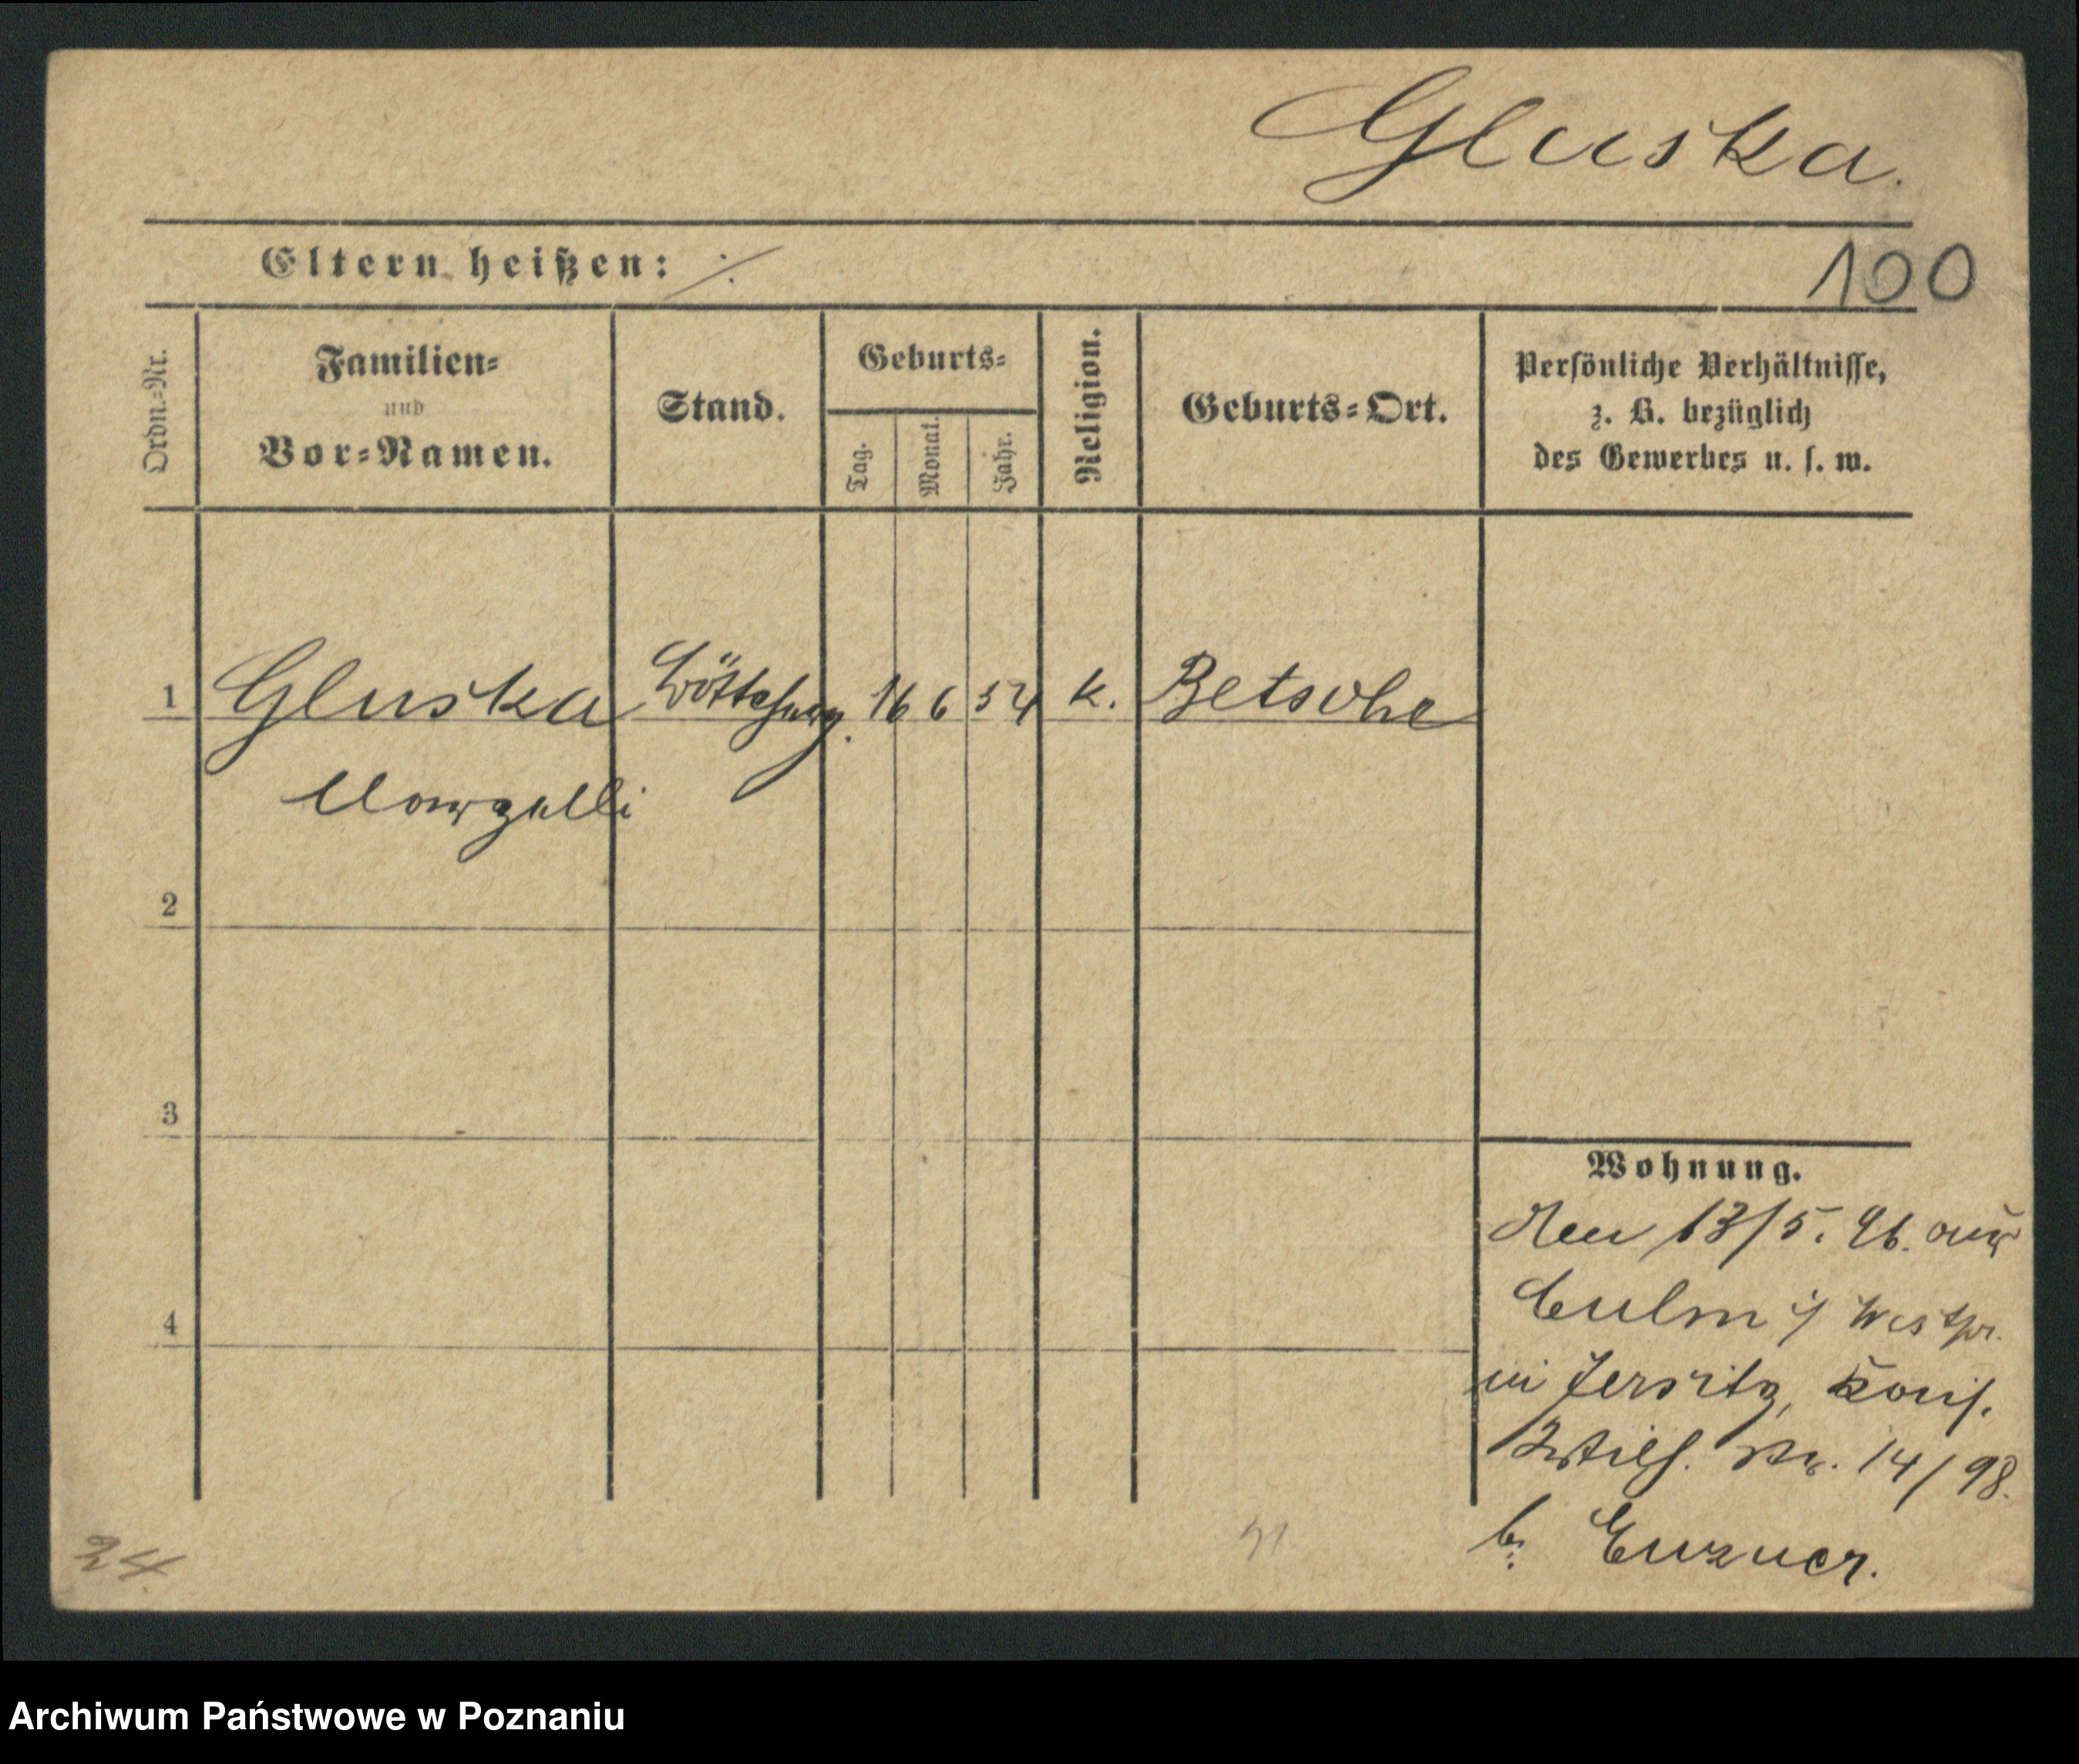 Gluska.
Eltern heißen: ⁒
100
Ordn.=Nr.
Familien=
und
Vor=Namen.
Stand.
Geburts=
Tag.
Monat.
Jahr.
Religion.
Geburts=Ort.
Persönliche Verhältnisse,
z. B. bezüglich
des Gewerbes u. s. w.
1 Gluska 16 6 54 k. Betsche
2
3
4
Wohnung.
Den 13/5. 96. aus
Culm i/ Westpr.
in Jersitz,
14/98.
b:
24
Archiwum Państwowe w Poznaniu